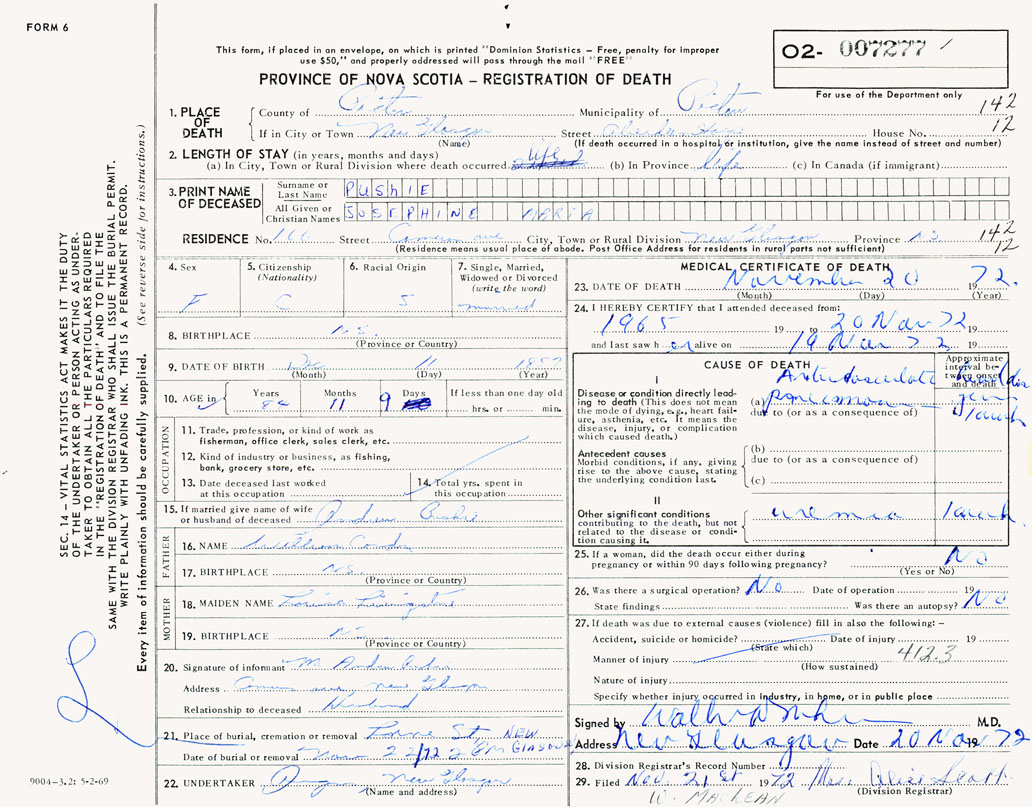 FORM 6
This form, if placed in an envelope, on which is printed "Dominion Statistics – Free, penalty for improper
use $50," and properly addressed will pass through the mail "FREE"
PROVINCE OF NOVA SCOTIA – REGISTRATION OF DEATH
O2- 007277
For use of the Department only
1. PLACE OF DEATH
County of Pictou Municipality of Pictou 142
If in City or Town New Glasgow Street Aberdeen Hosp House No. 12
(Name) (If death occurred in a hospital or institution, give the name instead of street and number)
2. LENGTH OF STAY (in years, months and days)
(a) In City, Town or Rural Division where death occurred life (b) In Province life (c) In Canada (if immigrant)
3. PRINT NAME OF DECEASED
Surname or Last Name PUSHIE
All Given or Christian Names JOSEPHINE MARIA
RESIDENCE No. 166 Street Cameron ave City, Town or Rural Division New Glasgow Province NS 142
(Residence means usual place of abode. Post Office Address for residents in rural parts not sufficient) 12
4. Sex F
5. Citizenship (Nationality) C
6. Racial Origin S
7. Single, Married, Widowed or Divorced (write the word) married
8. BIRTHPLACE N.S.
(Province or Country)
9. DATE OF BIRTH Dec 11
(Month) (Day) (Year)
10. AGE in Years 84 Months 11 Days 9 If less than one day old hrs. or min.
OCCUPATION
11. Trade, profession, or kind of work as
fisherman, office clerk, sales clerk, etc.
12. Kind of industry or business, as fishing,
bank, grocery store, etc.
13. Date deceased last worked
at this occupation
14. Total yrs. spent in
this occupation
15. If married give name of wife
or husband of deceased Andrew Pushie
FATHER
16. NAME William
17. BIRTHPLACE N.S.
(Province or Country)
MOTHER
18. MAIDEN NAME Louisa Livingstone
19. BIRTHPLACE N.S.
(Province or Country)
20. Signature of informant M Andrew Pushie
Address Cameron ave, New Glasgow
Relationship to deceased Husband
21. Place of burial, cremation or removal Lorne St, NEW GLASGOW
Date of burial or removal Nov 22/72 2 PM
22. UNDERTAKER New Glasgow
(Name and address)
MEDICAL CERTIFICATE OF DEATH
23. DATE OF DEATH November 20 1972.
(Month) (Day) (Year)
24. I HEREBY CERTIFY that I attended deceased from:
1965 19 to 20 Nov 72 19
and last saw her alive on 19 Nov 72 19
CAUSE OF DEATH
Approximate interval between onset and death
I
Disease or condition directly leading to death (This does not mean
the mode of dying, e.g., heart failure, asthenia, etc. It means the
disease, injury, or complication
which caused death.)
(a)
due to (or as a consequence of)
Antecedent causes
Morbid conditions, if any, giving
rise to the above cause, stating
the underlying condition last.
(b)
due to (or as a consequence of)
(c)
II
Other significant conditions
contributing to the death, but not
related to the disease or condition causing it.
uremia
25. If a woman, did the death occur either during
pregnancy or within 90 days following pregnancy? No
(Yes or No)
26. Was there a surgical operation? No Date of operation 19
State findings Was there an autopsy? No
27. If death was due to external causes (violence) fill in also the following: –
Accident, suicide or homicide? Date of injury 19
(State which)
Manner of injury 412.3
(How sustained)
Nature of injury
Specify whether injury occurred in industry, in home, or in public place
Signed by M.D.
Address New Glasgow Date 20 Nov 1972
28. Division Registrar's Record Number
29. Filed Nov. 21st 1972 Mrs. Alice Scott
(Division Registrar)
W. MacLEAN
SEC. 14 – VITAL STATISTICS ACT MAKES IT THE DUTY
OF THE UNDERTAKER OR PERSON ACTING AS UNDERTAKER TO OBTAIN ALL THE PARTICULARS REQUIRED
IN THE "REGISTRATION OF DEATH" AND TO FILE THE
SAME WITH THE DIVISION REGISTRAR WHO SHALL ISSUE THE BURIAL PERMIT.
WRITE PLAINLY WITH UNFADING INK. THIS IS A PERMANENT RECORD.
Every item of information should be carefully supplied. (See reverse side for instructions.)
9004-3.2: 5-2-69